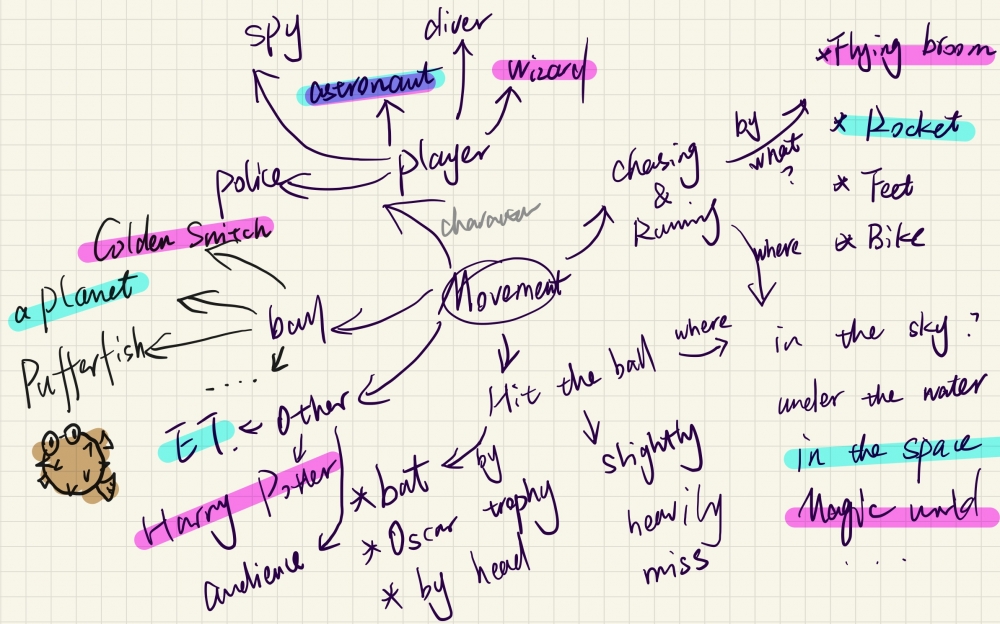 spy
diver
astronaut
wizard
*Flying broom
* Rocket
* Feet
* Bike
player
police
by
what
?
chasing
&
Running
where
Golden Snitch
a planet
Pufferfish
ball
....
Movement
Hit the ball
where
in the sky?
under the water
in the space
Magic world
...
Other
ET.
Harry Potter
audience
by
* bat
* Oscar trophy
* by head
slightly
heavily
miss